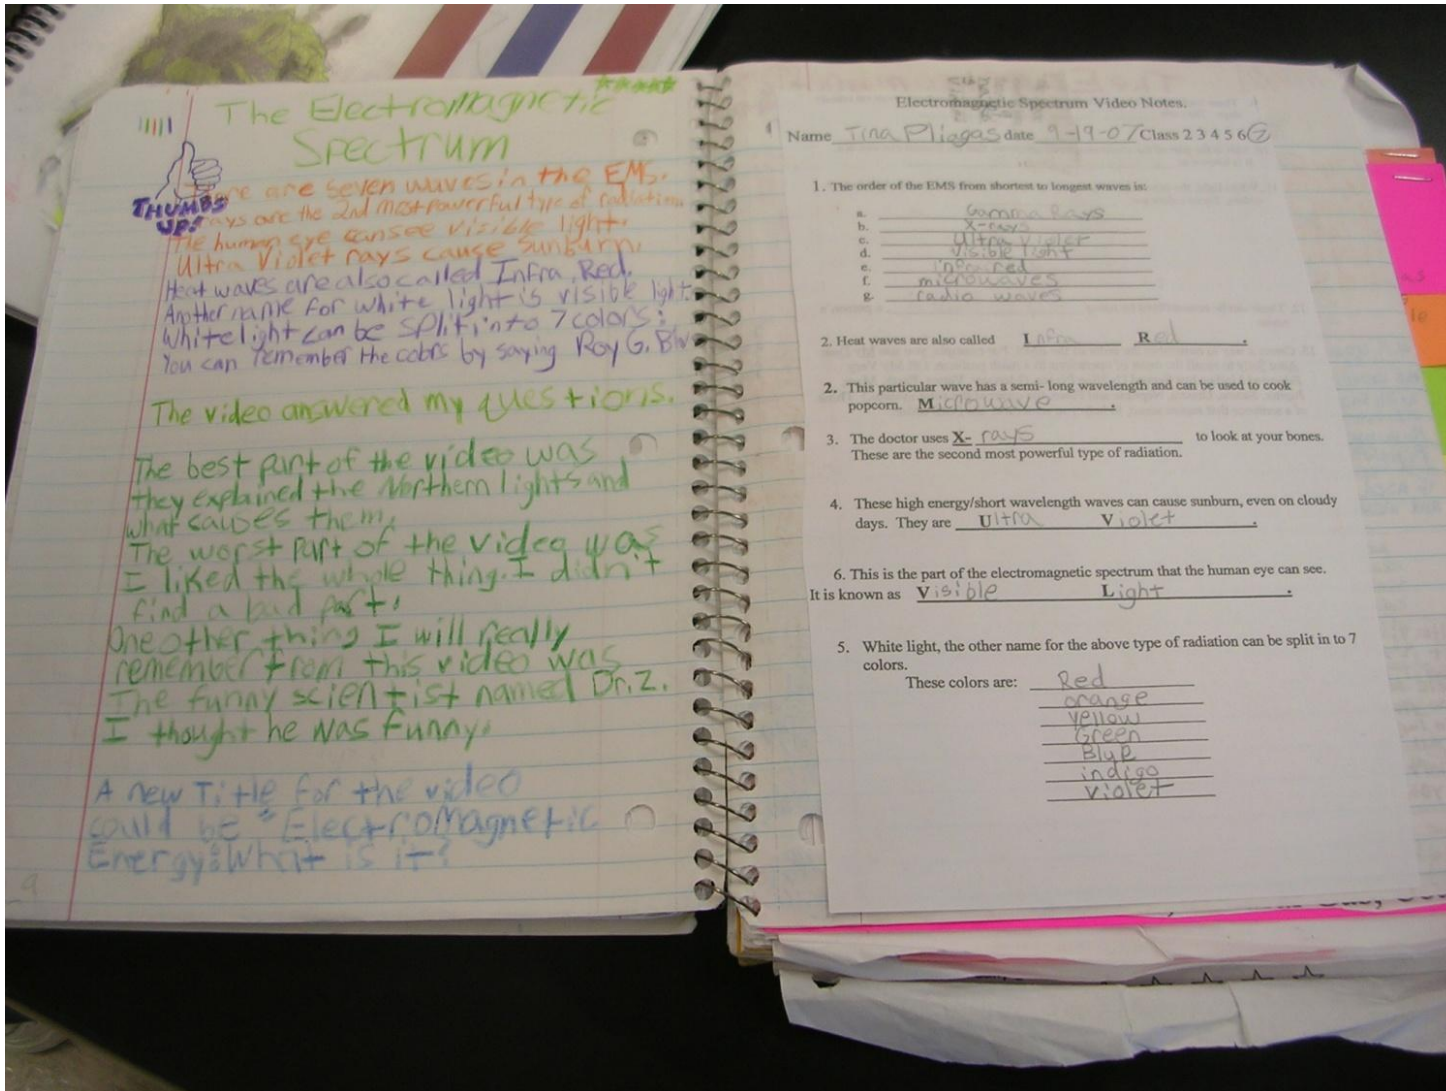 The Electromagnetic
Spectrum
THUMBS
UP!
are seven waves in the EMS.
rays are the 2nd most powerful type of radiation.
The human eye can see visible light.
Ultra Violet rays cause sunburn.
Heat waves are also called Infra Red.
Another name for white light is visible light.
White light can be split into 7 colors:
You can remember the colors by saying Roy G. Biv
The video answered my questions.
The best part of the video was
they explained the Northern lights and
what causes them.
The worst part of the video was
I liked the whole thing. I didn't
find a bad part.
One other thing I will really
remember from this video was
The funny scientist named Dr. Z.
I thought he was funny.
A new Title for the video
could be "Electromagnetic
Energy: What is it?
9
Electromagnetic Spectrum Video Notes.
Name Tina Pliagas date 9-19-07 Class 2 3 4 5 6 7
1. The order of the EMS from shortest to longest waves is:
a. Gamma Rays
b. X-rays
c. Ultra Violet
d. Visible light
e. infrared
f. microwaves
g. radio waves
2. Heat waves are also called Infra Red.
2. This particular wave has a semi- long wavelength and can be used to cook
popcorn. Microwave.
3. The doctor uses X- rays to look at your bones.
These are the second most powerful type of radiation.
4. These high energy/short wavelength waves can cause sunburn, even on cloudy
days. They are Ultra Violet.
6. This is the part of the electromagnetic spectrum that the human eye can see.
It is known as Visible Light.
5. White light, the other name for the above type of radiation can be split in to 7
colors.
These colors are: Red
orange
yellow
Green
Blue
indigo
violet